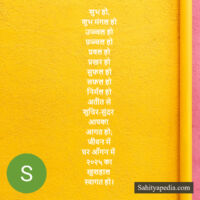 शुभ हो,
शुभ मंगल हो
उज्वल हो
प्रज्वल हो
प्रबल हो
प्रखर हो
सुफल हो
सफल हो
निर्मल हो
अतीत से
सुचिर-सुंदर
आपका
आगत हो;
जीवन में
घर आँगन में
२०२५ का
खुशहाल
स्वागत हो।
S
Sahityapedia.com